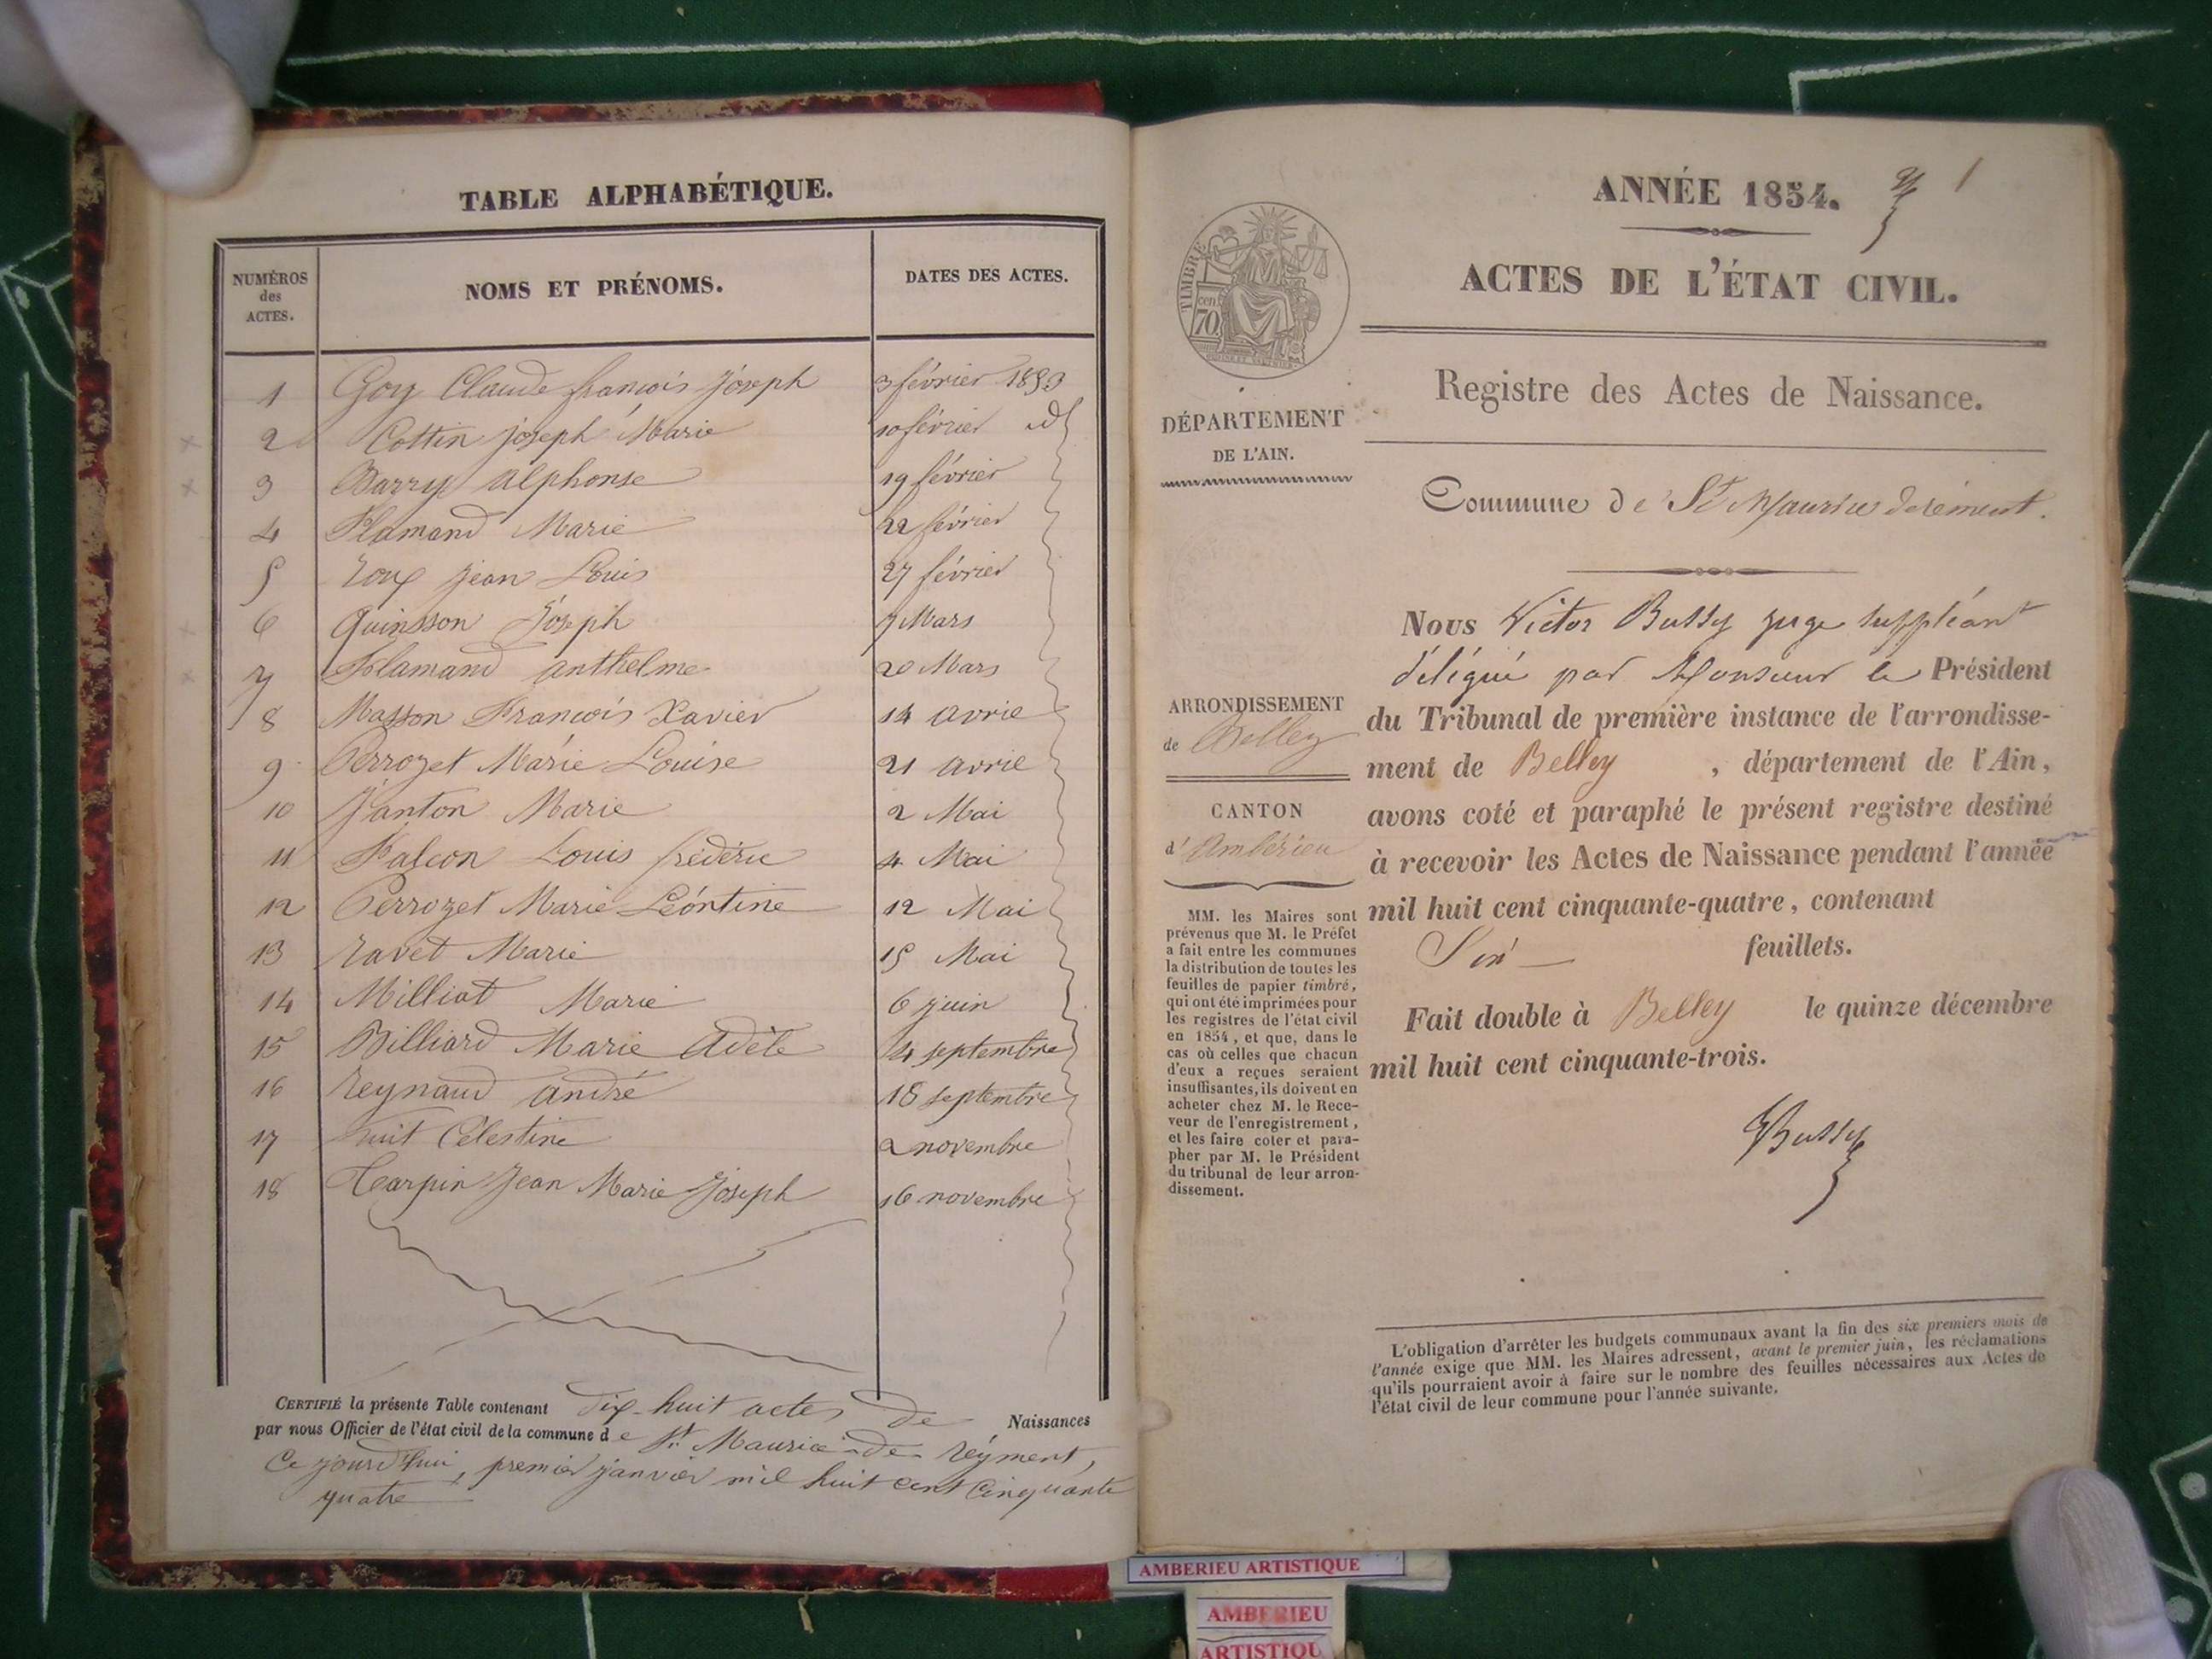 TABLE ALPHABÉTIQUE.
NUMÉROS des ACTES. NOMS ET PRÉNOMS. DATES DES ACTES.
1 Goy Claude françois Joseph 3 février 1853
2 Cottin joseph Marie 10 février id
3 Barry alphonse 19 février
4 Flamand Marie 22 février
5 Roux jean Louis 27 février
6 Quinsson Joseph 7 Mars
7 Flamand anthelme 20 Mars
8 Masson François Xavier 14 avril
9 Perrozet Marie Louise 21 avril
10 Janton Marie 2 Mai
11 Falcon Louis frédéric 4 Mai
12 Perrozet Marie Léontine 12 Mai
13 Ravet Marie 15 Mai
14 Milliat Marie 6 juin
15 Billiard Marie Adèle 14 septembre
16 Reynaud andré 18 septembre
17 huit Célestine 2 novembre
18 Carpin Jean Marie Joseph 16 novembre
CERTIFIÉ la présente Table contenant dix-huit actes de Naissances
par nous Officier de l'état civil de la commune de St. Maurice-de-Réyment,
Ce jourd'hui, premier janvier mil huit cent Cinquante
quatre
ANNÉE 1854. 1
TIMBRE
70 cent
ACTES DE L'ÉTAT CIVIL.
Registre des Actes de Naissance.
DÉPARTEMENT
DE L'AIN.
Commune de St Maurice derément.
ARRONDISSEMENT
de Belley
CANTON
d'Ambérieu
MM. les Maires sont
prévenus que M. le Préfet
a fait entre les communes
la distribution de toutes les
feuilles de papier timbré,
qui ont été imprimées pour
les registres de l'état civil
en 1854, et que, dans le
cas où celles que chacun
d'eux a reçues seraient
insuffisantes, ils doivent en
acheter chez M. le Rece-
veur de l'enregistrement,
et les faire coter et para-
pher par M. le Président
du tribunal de leur arron-
dissement.
Nous Victor Bussy juge suppléant
délégué par Monsieur le Président
du Tribunal de première instance de l'arrondisse-
ment de Belley, département de l'Ain,
avons coté et paraphé le présent registre destiné
à recevoir les Actes de Naissance pendant l'année
mil huit cent cinquante-quatre, contenant
Six feuillets.
Fait double à Belley le quinze décembre
mil huit cent cinquante-trois.
Bussy
L'obligation d'arrêter les budgets communaux avant la fin des six premiers mois de
l'année exige que MM. les Maires adressent, avant le premier juin, les réclamations
qu'ils pourraient avoir à faire sur le nombre des feuilles nécessaires aux Actes de
l'état civil de leur commune pour l'année suivante.
AMBERIEU ARTISTIQUE
AMBERIEU
ARTISTIQU